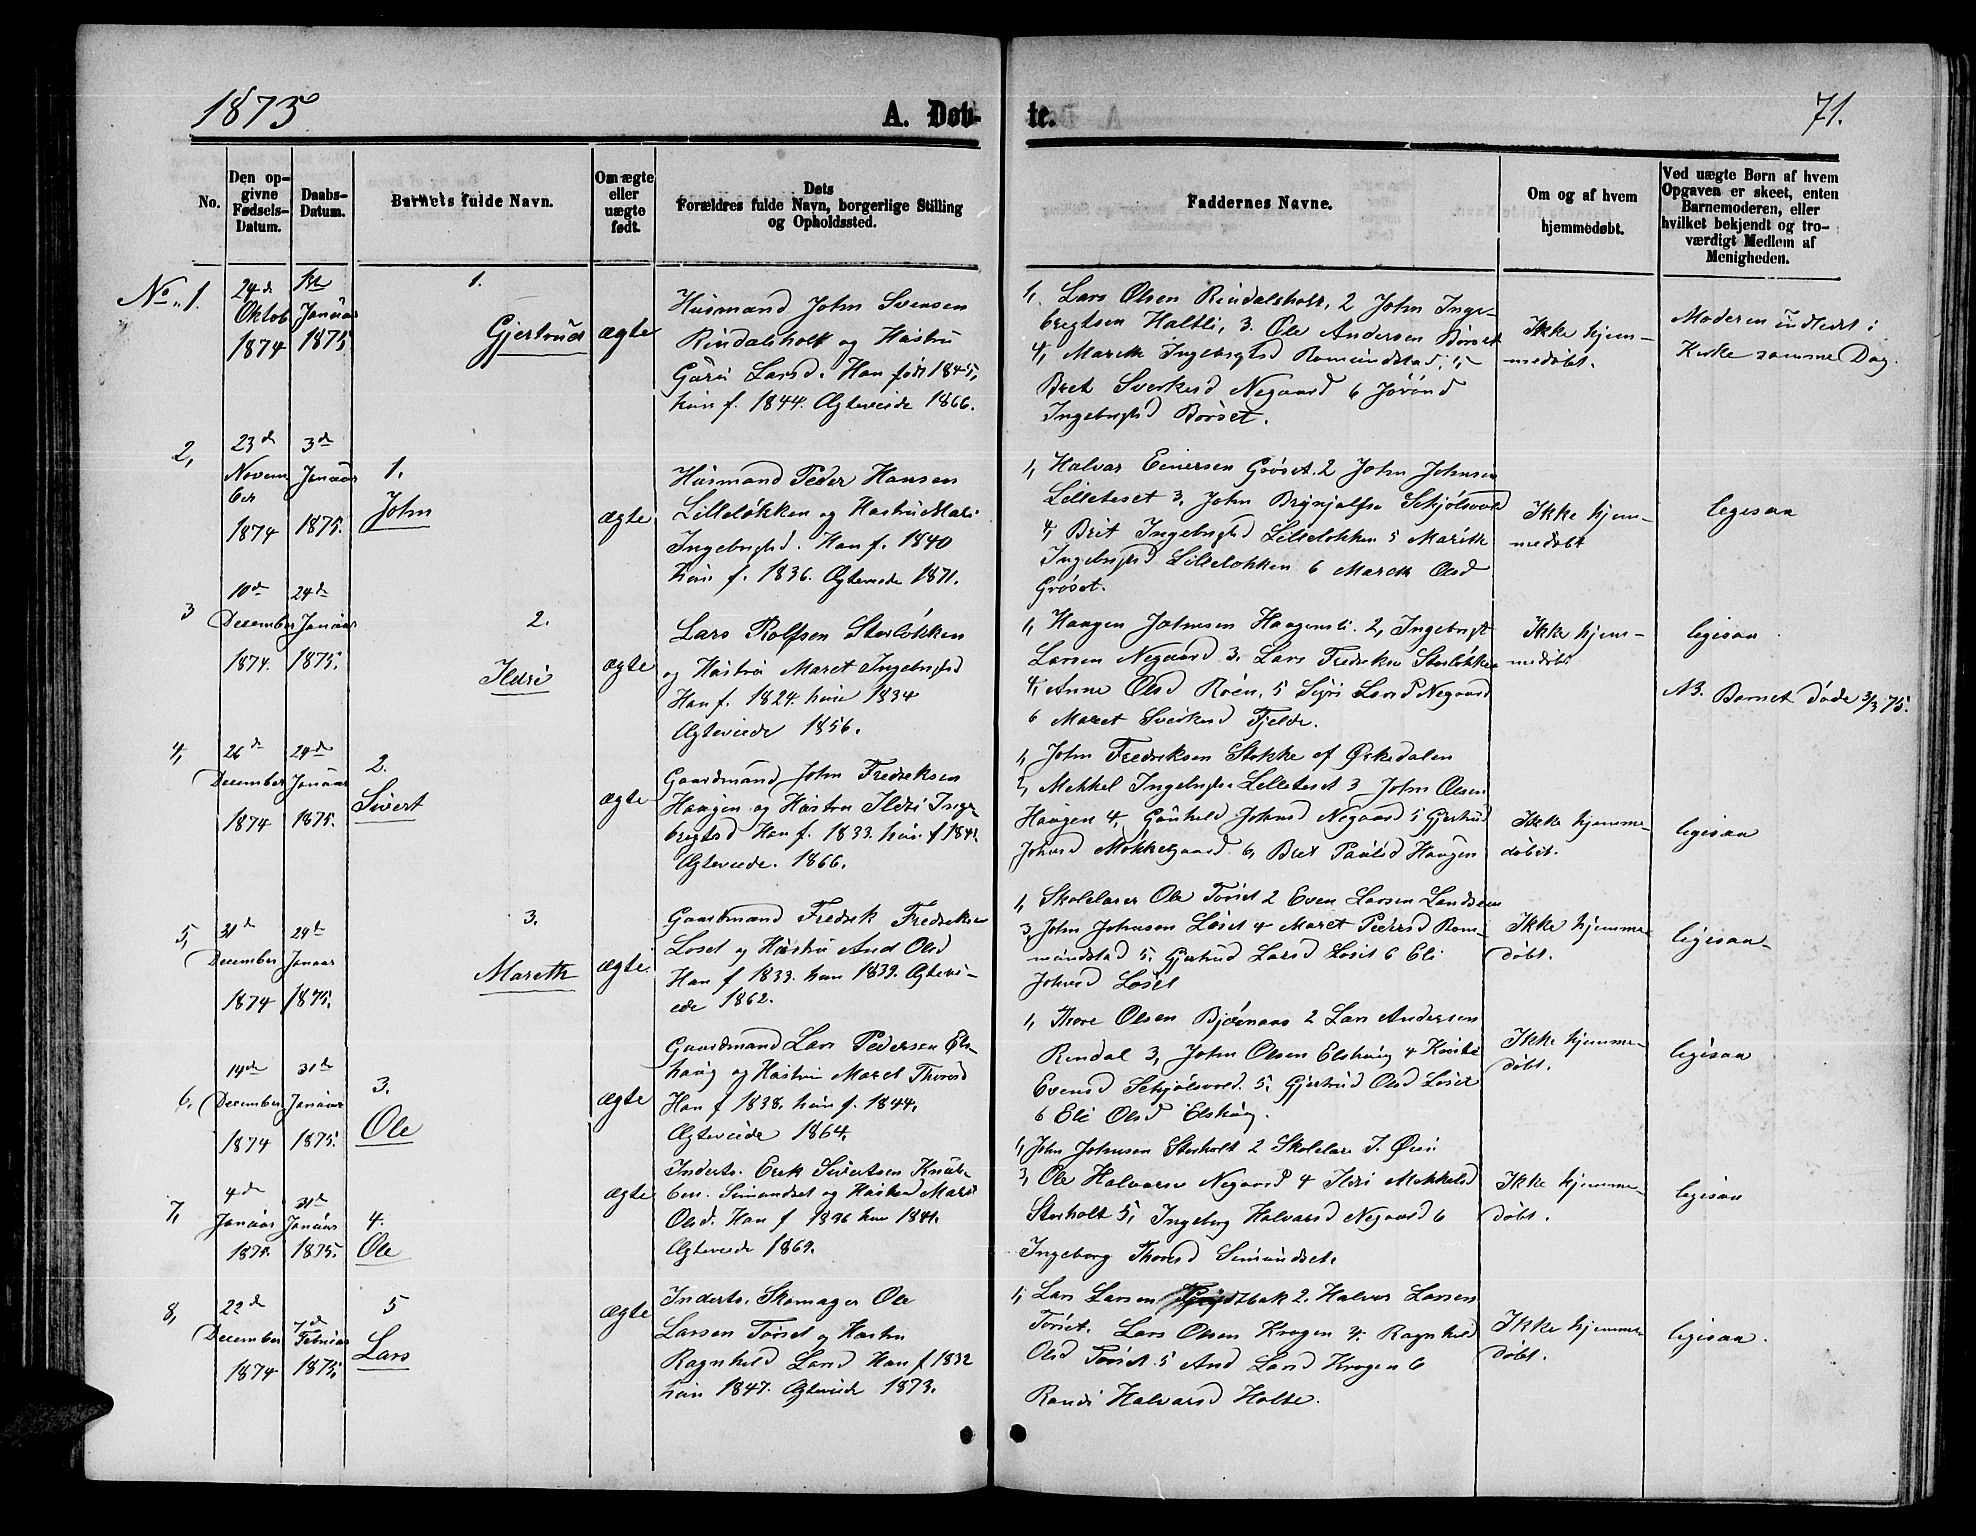 1875
A. Døb-
te.
71.
No.
Den op-
givne
Fødsels-
Datum.
Daabs-
Datum.
Barnets fulde Navn.
Om ægte
eller
uægte
født.
Dets
Forældres fulde Navn, borgerlige Stilling
og Opholdssted.
Faddernes Navne.
Om og af hvem
hjemmedøbt.
Ved uægte Børn af hvem
Opgaven er skeet, enten
Barnemoderen, eller
hvilket bekjendt og tro-
værdigt Medlem af
Menigheden.
No. 1.
24de
Oktob
1874
1ste
Januar
1875
1.
Gjertrud
ægte
Husmand John Svensen
Rindalsholt og Hustru
Guru Larsd. Han født 1845,
hun f. 1844. Ægteviede 1866.
1, Lars Olsen Rindalsholt, 2 John Inge-
bregtsen Haltli, 3. Ole Andersen Børset
4, Mareth Ingebrigtsd Romundstad, 5,
Bret Sverkesd Negaard 6 Jorond
Ingebrigtsd Børset.
Ikke hjem-
medøbt.
Moderen indledet i
Kirke samme Dag.
2,
23de
Novem
ber
1874
3de
Januar
1875.
1.
John
ægte
Husmand Peder Hansen
Lilleløkken og Hustru Mari
Ingebrigtsd. Han f. 1840
hun f. 1836. Ægteviede 1871.
1, Halvar Einersen Grøset. 2 John Johnsen
Lilleteset 3, John Brynjulfsen Schjølsvold
4, Brit Ingebrigtsd Lilleløkken 5 Marith
Ingebrigtsd Lilleløkken 6 Mareth Olsd
Grøset.
Ikke hjem-
medøbt
ligesaa
3
10de
December
1874.
24de
Januar
1875.
2.
Ildri
ægte
Lars Rolfsen Storløkken
og Hustru Maret Ingebrigtsd
Han f. 1824. hun 1834
Ægteviede 1856.
1, Haagen Johnsen Haagensli. 2, Ingebrigt
Larsen Negaard 3. Lars Fredriksen Storløkken
4, Anne Olsd Røen, 5 Sigri Larsd Negaard
6 Maret Sverkesd Fjelde.
Ikke hjem-
medøbt
ligesaa.
NB. Barnet døde 3/3 75.
4,
26de
December
1874
24de
Januar
1875.
2.
Sivert
ægte
Gaardmand John Fredriksen
Haugen og Hustru Ildri Inge-
bregtsd Han f. 1833. hun f 1841.
Ægteviede. 1866.
1, John Fredriksen Stokke af Ørkedalen
2, Mekkel Ingebrigtsen Lilleteset 3 John Olsen
Haugen 4, Gunhild Johnsd Negaard 5 Gjertrud
Johnsd Mokkelgaard. 6, Bret Paulsd Haugen
Ikke hjemme-
døbt.
ligesaa
5,
31de
December
1874
24de
Januar
1875.
3.
Mareth
ægte
Gaardmand Fredrik Fredriksen
Løset og Hustru And Olsd
Han f 1833. hun 1839. Ægtevi-
ede 1862.
1, Skolelærer Ole Tørset 2 Even Larsen Landsem
3, John Johnsen Løset 4 Maret Pedersd Rom-
undstad 5, Gjertrud Larsd Løset 6 Eli
Johnsd Løset
Ikke hjemme-
døbt.
ligesaa
6,
14de
December
1874
31de
Januar
1875.
3.
Ole
ægte
Gaardmand Lars Pedersen Els-
haug og Hustru Maret Thoresd
Han f 1838. hun f. 1844.
Ægteviede 1864.
1, Thore Olsen Bjørnaas 2 Lars Andersen
Rindal 3, John Olsen Elshaug 4
Evensd Schjølsvold. 5, Gjertrud Olsd Løset
6 Eli Olsd Elshaug.
Ikke hjemme-
døbt.
ligesaa
7,
4de
Januar
1875.
31de
Januar
1875.
4.
Ole
ægte
Inderts. Erik Sivertsen
Simundset og Hustru Mari
Olsd. Han f 1836 hun 1841.
Ægteviede 1869.
1, John Johnsen Storholt 2 J. Øien
3, Ole Halvarsen Negaard 4 Ildri Mekkelsd
Storholt 5, Ingeborg Halvarsd Negaard 6
Ingeborg Thoresd Simundset.
Ikke hjemme-
døbt.
ligesaa
8,
22de
December
1874
7de
Februar
1875.
5
Lars
ægte
Inderts. Skomager Ole
Larsen Tørset og Hustru
Ragnhild Larsd Han f 1832
hun 1847. Ægteviede 1873.
1, Lars Larsen 2. Halvar Larsen
Tørset. Lars Olsen Krogen 4. Ragnhild
Olsd Tørset 5 And Larsd Krogen 6
Randi Halvarsd Holte.
Ikke hjemme-
døbt.
ligesaa.